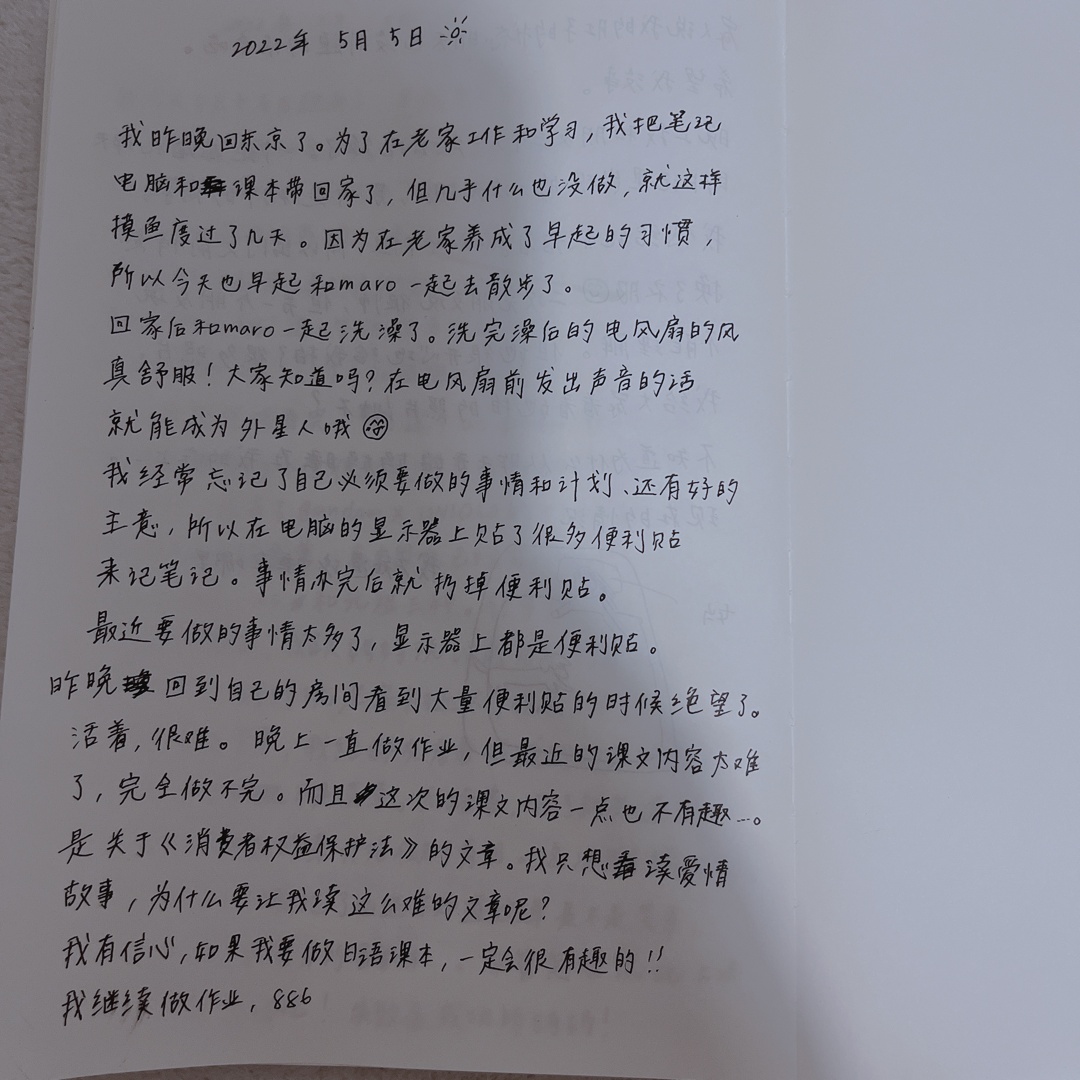 2022年 5月 5日
我昨晚回东京了。为了在老家工作和学习，我把笔记
电脑和课本带回家了，但几乎什么也没做，就这样
摸鱼度过了几天。因为在老家养成了早起的习惯，
所以今天也早起和maro一起去散步了。
回家后和maro一起洗澡了。洗完澡后的电风扇的风
真舒服！大家知道吗？在电风扇前发出声音的话
就能成为外星人哦
我经常忘记了自己必须要做的事情和计划、还有好的
主意，所以在电脑的显示器上贴了很多便利贴
来记笔记。事情办完后就扔掉便利贴。
最近要做的事情太多了，显示器上都是便利贴。
昨晚回到自己的房间看到大量便利贴的时候绝望了。
活着，很难。晚上一直做作业，但最近的课文内容太难
了，完全做不完。而且这次的课文内容一点也不有趣…。
是关于《消费者权益保护法》的文章。我只想读爱情
故事，为什么要让我读这么难的文章呢？
我有信心，如果我要做日语课本，一定会很有趣的！！
我继续做作业，886